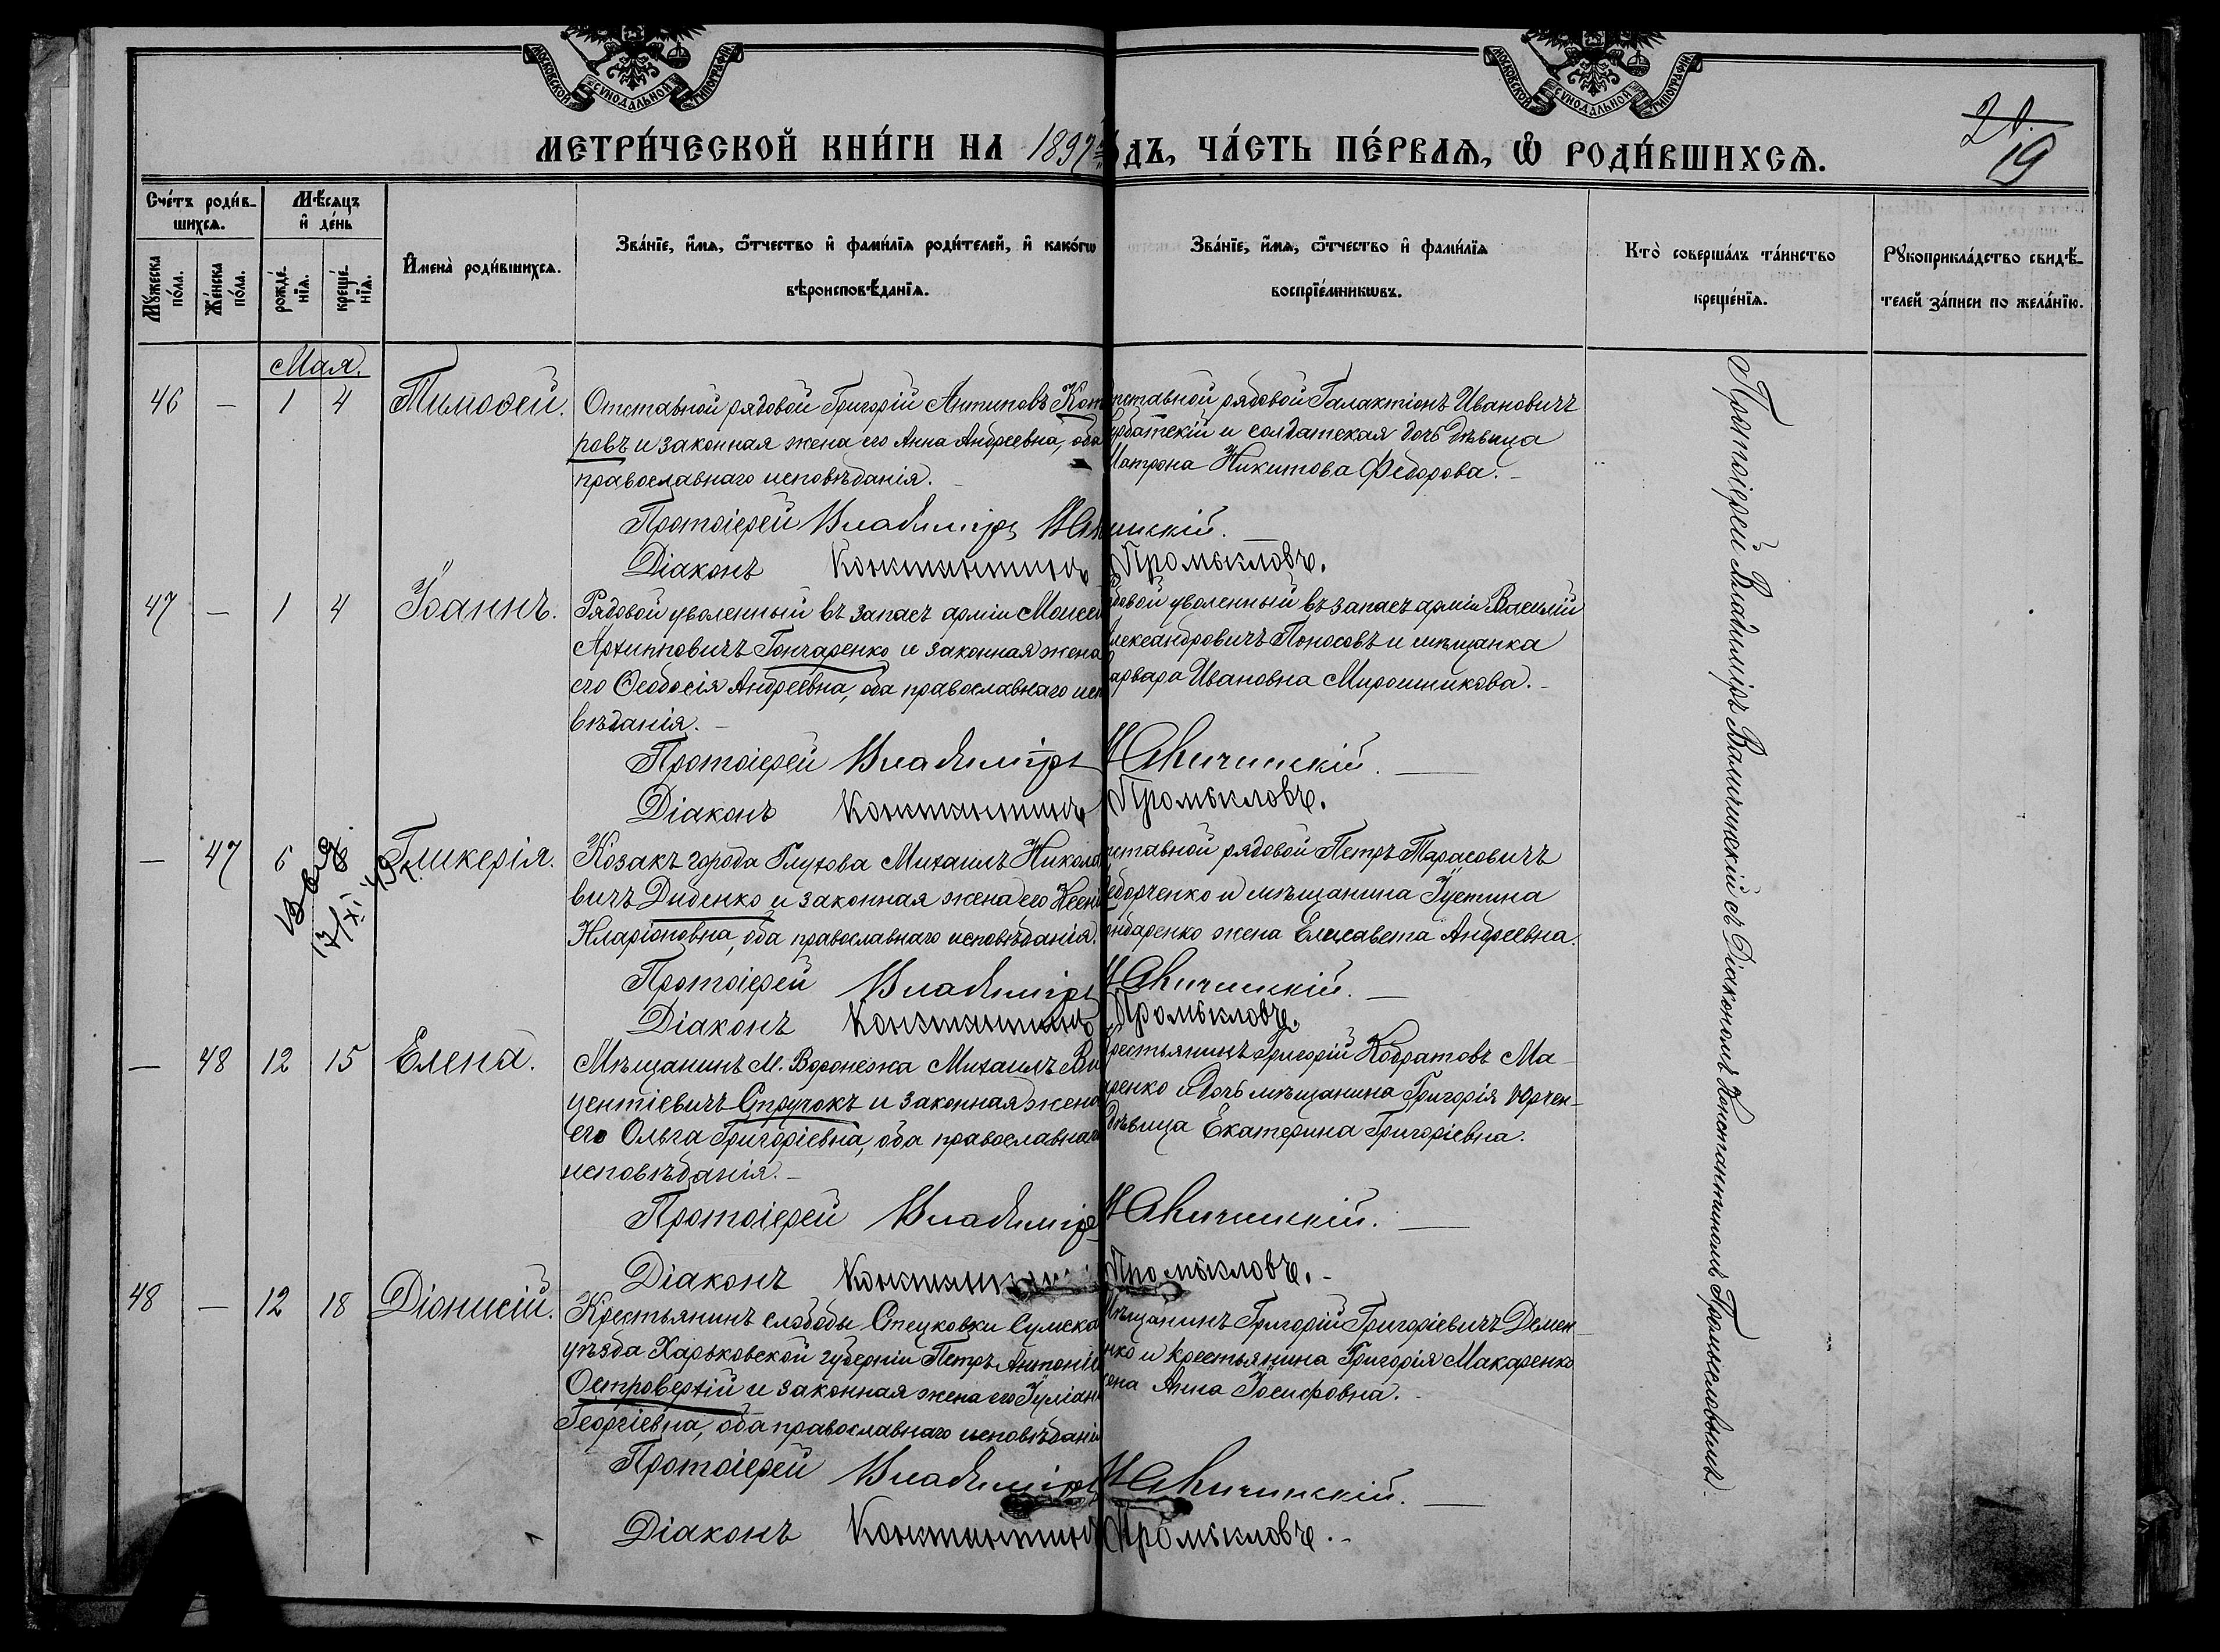 МОСКОВСКОЙ СѴНОДАЛЬНОЙ ТИПОГРАФІИ
МОСКОВСКОЙ СѴНОДАЛЬНОЙ ТИПОГРАФІИ
МЕТРИ́ЧЕСКОЙ КНИ́ГИ НА 1897 ДЪ, ЧА́СТЬ ПЕ́РВАѦ, Ѡ҆ РОДИ́ВШИХСѦ.
21
19
Сче́тъ роди́в-
шихсѧ.
Мѣ́сѧцъ
и҆ де́нь
Мꙋ́жеска
по́ла.
Же́нска
по́ла.
рожде́-
нїѧ.
креще́-
нїѧ.
И҆мена̀ роди́вшихсѧ.
Зва́нїе, и҆́мѧ, ѻ҆́тчество и҆ фами́лїѧ роди́телей, и҆ како́гѡ
вѣроисповѣ́данїѧ.
Зва́нїе, и҆́мѧ, ѻ҆́тчество и҆ фами́лїѧ
воспрїе́мникѡвъ.
Кто̀ соверша́лъ та́инство
креще́нїѧ.
Рꙋкоприкла́дство свидѣ́-
телей за́писи по жела́нїю.
Мая.
46 — 1 4 Тимоѳей. Отставной рядовой Григорій Антиповъ Кот
ровъ и законная жена его Анна Андреевна, оба
православнаго исповѣданія. —
тставной рядовой Галактіонъ Ивановичъ
рбатскій и солдатская дочь дѣвица
Матрона Никитова Федорова. —
Протоіерей Владиміръ
Діаконъ Константинъ Промысловъ.
47 — 1 4 Іоаннъ. Рядовой уволенный въ запасъ арміи Моисей
Архипповичъ Гончаренко и законная жена
его Ѳеодосія Андреевна, оба православнаго исп
вѣданія. —
довой уволенный въ запасъ арміи Василій
лександровичъ Поносовъ и мѣщанка
арвара Ивановна Мирошникова. —
Протоіерей Владиміръ
Діаконъ Константинъ Промысловъ.
— 47 6 Гликерія. Козакъ города Глухова Михаилъ Никола
вичъ Диденко и законная жена его Ксені
Иларіоновна, оба православнаго исповѣданія.
тставной рядовой Петръ Тарасовичъ
едорченко и мѣщанина Іустина
ондаренко жена Елисавета Андреевна.
Протоіерей Владиміръ
Діаконъ Константинъ Промысловъ.
— 48 12 15 Елена. Мѣщанинъ м. Воронежа Михаилъ Ви
центіевичъ Стручокъ и законная жена
его Ольга Григоріевна, оба православнаго
исповѣданія. —
рестьянинъ Григорій Кодратовъ Ма-
ренко и дочь мѣщанина Григорія Юрчен-
дѣвица Екатерина Григоріевна.
Протоіерей Владиміръ
Діаконъ Константинъ Промысловъ. —
48 — 12 18 Діонисій. Крестьянинъ слободы Стецковки Сумска
уѣзда Харьковской губерніи Петръ Антоніе
Островерхій и законная жена его Іуліан
Георгіевна, оба православнаго исповѣдані
ѣщанинъ Григорій Григоріевичъ Демен-
нко и крестьянина Григорія Макаренко
ена Анна Іосифовна. —
Протоіерей Владиміръ
Діаконъ Константинъ Промысловъ. —
Протоіерей Владиміръ съ Діакономъ Константиномъ Промысловымъ.